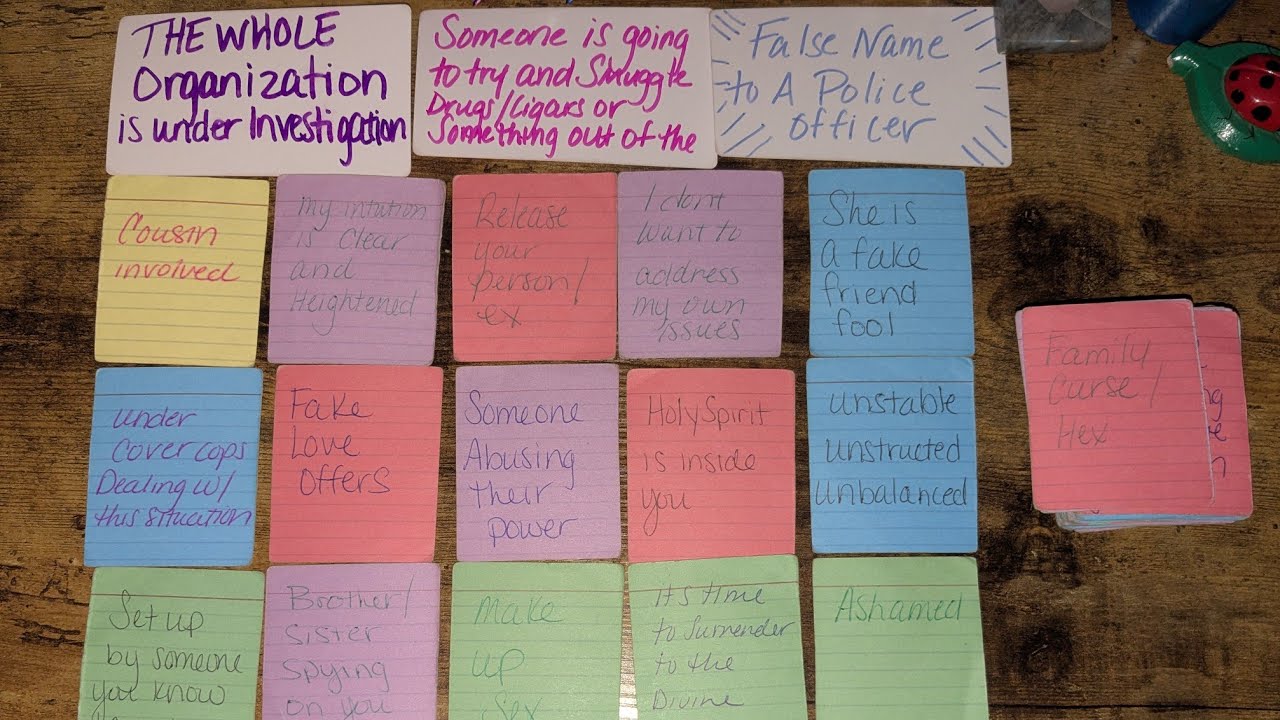 THE WHOLE
Organization
is under Investigation
Someone is going
to try and Smuggle
Drugs/Cigars or
Something out of the
False Name
to A Police
officer
Cousin
involved
my intution
is Clear
and
Heightened
Release
your
person/
ex
I dont
want to
address
my own
issues
She is
a fake
friend
fool
under
Cover cops
Dealing w/
this situation
Fake
Love
offers
Someone
Abusing
their
power
Holy Spirit
is inside
you
unstable
unstructed
unbalanced
Family
Curse/
Hex
Set up
by someone
you know
Brother/
Sister
Spying
on you
Make
up
Sex
its time
to Surrender
to the
Divine
Ashamed